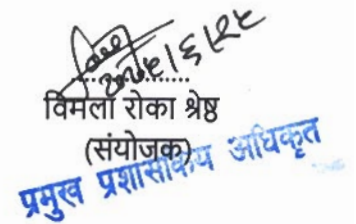 २०७५/६/२८
..................
विमला रोका श्रेष्ठ
(संयोजक)
प्रमुख प्रशासकिय अधिकृत